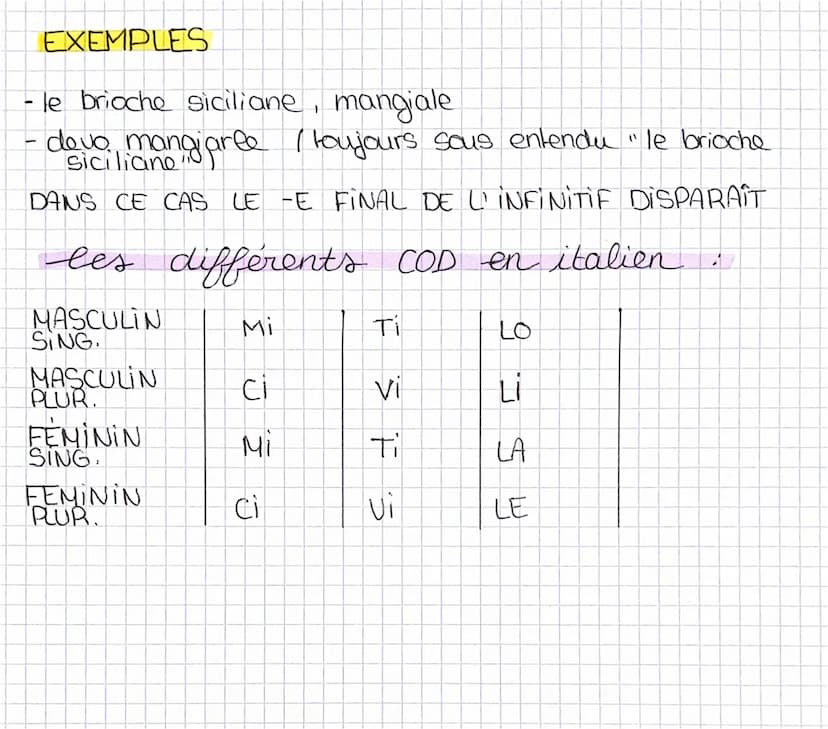 EXEMPLES
- le brioche siciliane, mangiale
- devo mangiarle (toujours sous entendu "le brioche
siciliane")
DANS CE CAS LE -E FINAL DE L'INFINITIF DISPARAÎT
les différents COD en italien :
MASCULIN SING. Mi Ti LO
MASCULIN PLUR. Ci Vi Li
FÉMININ SING. Mi Ti LA
FEMININ PLUR. Ci Vi LE